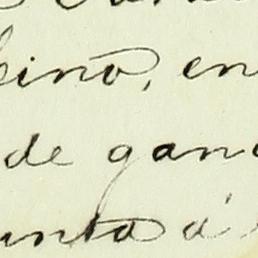 eino, en
de gan
unto á